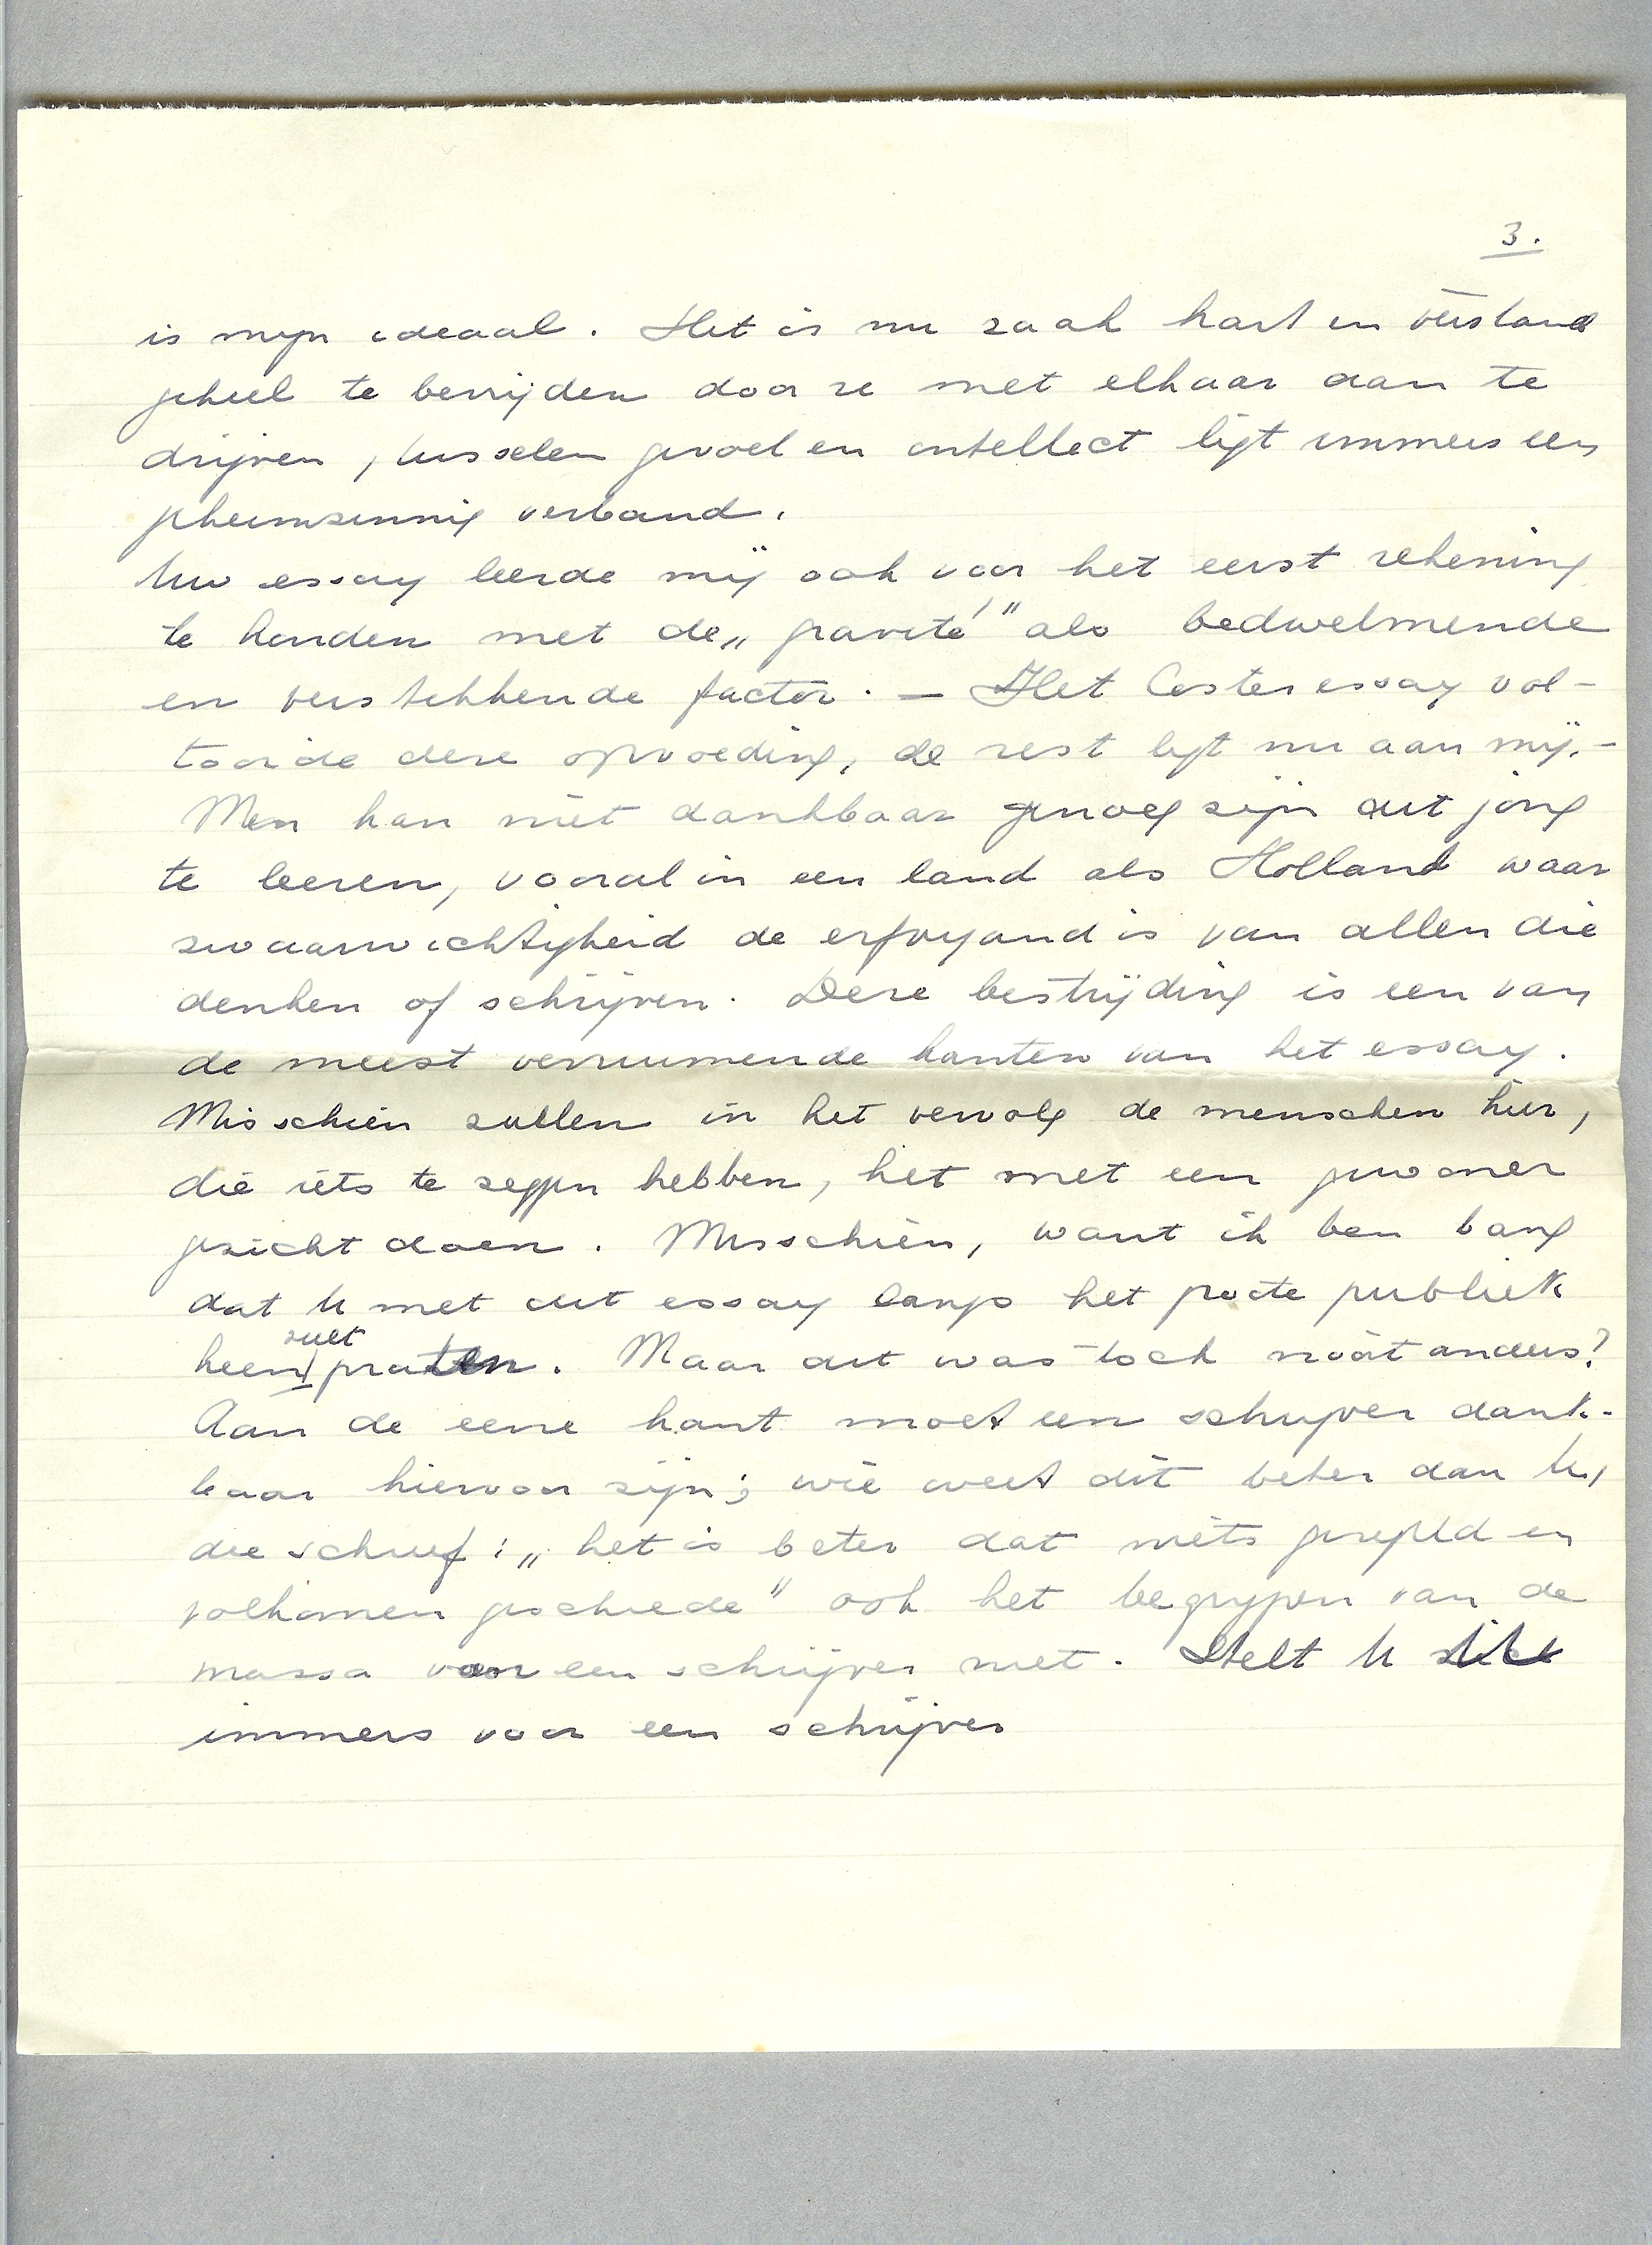 3.
is mijn ideaal. Het is nu zaak hart en verstand
geheel te bevrijden door ze met elkaar aan te
drijven, tusschen gevoel en intellect ligt immers een
geheimzinnig verband.
Uw essay leerde mij ook voor het eerst rekening
te houden met de „gravité" als bedwelmende
en verstikkende factor. — Het Coster essay vol-
tooide deze opvoeding, de rest ligt nu aan mij. —
Men kan niet dankbaar genoeg zijn dit jong
te leeren, vooral in een land als Holland waar
zwaarwichtigheid de erfvyand is van allen die
denken of schrijven. Deze bestrijding is een van
de meest verruimende kanten van het essay.
Misschien zullen in het vervolg de menschen hier,
die iets te zeggen hebben, het met een gewoner
gezicht doen. Misschien, want ik ben bang
dat U met dit essay langs het groote publiek
heen zult praten. Maar dit was toch nooit anders?
Aan de eene kant moet een schrijver dank-
baar hiervoor zijn; wie weet dit beter dan U,
die schreef: „het is beter dat niets geregeld en
volkomen geschiede" ook het begrijpen van de
massa voor een schrijver niet. Stelt U zich
immers voor een schrijver